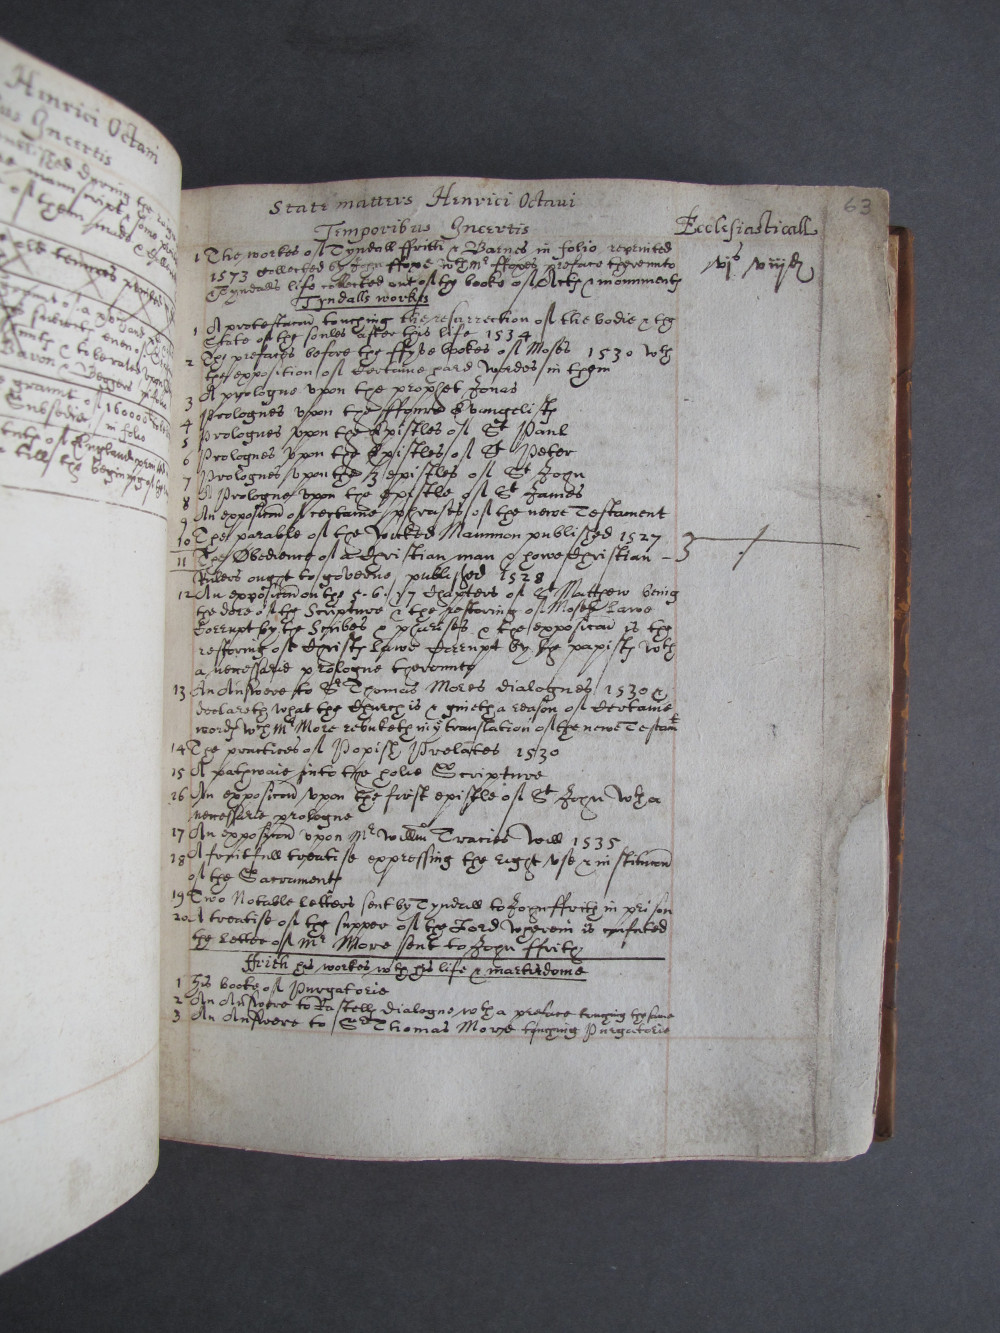 Hinrici Octaui
Incertis
State matters Hinrici Octaui
63
Temporibus Incertis
Ecclesiasticall
1 The workes of Tyndall ffrith & Barnes in folio reprinted
vjs viijd
1573 collected by John ffoxe wth Mr ffoxes preface therevnto
Tyndalls life collected out of the booke of Acts & monuments
Tyndalls workes
1 A protestacon touching the resurrection of the bodie & the
State of the soules after this life 1534
2 The prefaces before the ffyve bookes of Moses 1530 wth
the exposition of Certaine hard wordes in them
3 A prologue vpon the prophet Jonas
4 Prologues vpon the ffowre Evangelists
5 Prologues vpon the Epistles of St Paul
6 Prologues vpon the Epistles of St Peter
7 Prologues vpon the 3 epistles of St John
8 A Prologue vpon the Epistle of St James
9 An exposicon of certaine phrases of the newe Testament
10 The parable of the Wicked Mammon published 1527
11 The Obedience of a Christian man & howe Christian
3
Rulers ought to governe published 1528
12 An exposicon on the 5. 6. & 7 Chapters of St Matthew being
the dore of the Scripture & the restoring of Moses Lawe
Corrupt by the Scribes & pharises & the exposicon is the
restoring of Christs Lawe Corrupt by the papists wth
a necessarie prologue therevnto
13 An Answere to Sr Thomas Mores dialogues 1530 &
declareth what the Church is & giveth a reason of Certaine
words wch Mr More rebuketh in ye translation of the newe Testamt
14 The practices of Popish Prelates 1530
15 A pathwaie into the holie Scripture
16 An exposicon vpon the first epistle of St John wth a
necessarie prologue
17 An exposicon vpon Mr Willm Tracies Will 1535
18 A fruitfull treatise expressing the right vse & institucon
of the Sacraments
19 Two Notable Letters sent by Tyndall to John ffrith in prison
20 A treatise of the supper of the Lord wherein is confuted
the Letter of Mr More sent to John ffrith
ffrith his workes wth his life & martirdome
1 His booke of Purgatorie
2 An Answere to Rastells dialogue wth a preface touching the same
3 An Answere to Sr Thomas More touching Purgatorie